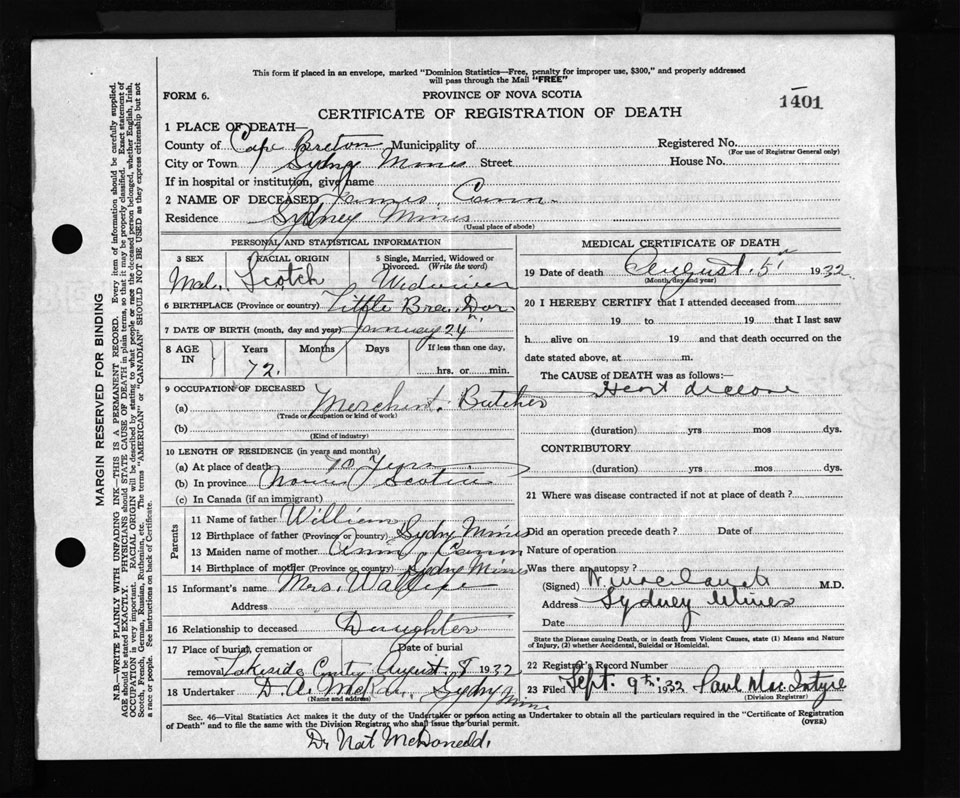 This form if placed in an envelope, marked "Dominion Statistics—Free, penalty for improper use, $300," and properly addressed
will pass through the Mail "FREE"
FORM 6.
PROVINCE OF NOVA SCOTIA
1401
CERTIFICATE OF REGISTRATION OF DEATH
MARGIN RESERVED FOR BINDING
N.B.—WRITE PLAINLY WITH UNFADING INK—THIS IS A PERMANENT RECORD. Every item of information should be carefully supplied.
AGE should be stated EXACTLY. PHYSICIANS should STATE CAUSE OF DEATH in plain terms, so that it may be properly classified. Exact statement of
OCCUPATION is very important. RACIAL ORIGIN will be described by stating to what people or race the deceased person belonged, whether English, Irish,
Scotch, French, German, Russian, Ruthenian, etc. The terms "AMERICAN" or "CANADIAN" SHOULD NOT BE USED as they express citizenship but not
a race or people. See instructions on back of Certificate.
1 PLACE OF DEATH—
County of Cape Breton Municipality of Registered No.
(For use of Registrar General only)
City or Town Sydney Mines Street House No.
If in hospital or institution, give name
2 NAME OF DECEASED James Cann
Residence Sydney Mines
(Usual place of abode)
PERSONAL AND STATISTICAL INFORMATION
3 SEX
RACIAL ORIGIN
5 Single, Married, Widowed or
Divorced. (Write the word)
Male Scotch Widower
6 BIRTHPLACE (Province or country) Little Bras Dor
7 DATE OF BIRTH (month, day and year) January 24
8 AGE IN Years Months Days If less than one day,
72 hrs. or min.
9 OCCUPATION OF DECEASED
(a) Merchant. Butcher
(Trade or occupation or kind of work)
(b)
(Kind of industry)
10 LENGTH OF RESIDENCE (in years and months)
(a) At place of death 70 Years
(b) In province Nova Scotia
(c) In Canada (if an immigrant)
Parents
11 Name of father William
12 Birthplace of father (Province or country) Sydny Mines
13 Maiden name of mother Ann Cann
14 Birthplace of mother (Province or country) Sydny Mines
15 Informant's name Mrs.
Address
16 Relationship to deceased Daughter
17 Place of burial, cremation or Date of burial
removal Lakeside August 8 1932
18 Undertaker D. A. Sydny Mines
(Name and address)
MEDICAL CERTIFICATE OF DEATH
19 Date of death August. 5 1932
(Month, day and year)
20 I HEREBY CERTIFY that I attended deceased from
19 to 19 that I last saw
h alive on 19 and that death occurred on the
date stated above, at m.
The CAUSE OF DEATH was as follows:—
Heart disease
(duration) yrs mos dys.
CONTRIBUTORY.
(duration) yrs mos dys.
21 Where was disease contracted if not at place of death?
Did an operation precede death? Date of
Nature of operation
Was there an autopsy?
(Signed) M.D.
Address Sydney Mines
Date
State the Disease causing Death, or in death from Violent Causes, state (1) Means and Nature
of Injury, (2) whether Accidental, Suicidal or Homicidal.
22 Registrar's Record Number
23 Filed Sept. 9th 1932 Paul Mac Intyre
(Division Registrar)
Sec. 46—Vital Statistics Act makes it the duty of the Undertaker or person acting as Undertaker to obtain all the particulars required in the "Certificate of Registration
of Death" and to file the same with the Division Registrar who shall issue the burial permit.
(OVER)
Dr Nat McDonald.